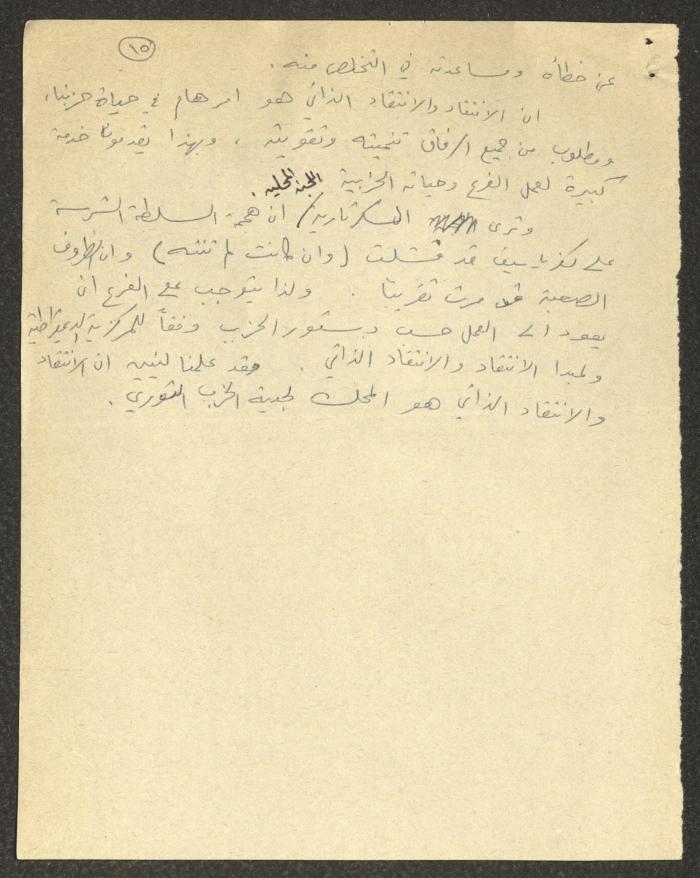 ١٥
عن خطأه ومساعدته في التخلص منه.
ان الانتقاد والانتقاد الذاتي هو امر هام في حياة حزبنا،
ومطلوب من جميع الرفاق تنميته وتقويته، وبهذا يقدمون خدمة
كبيرة لعمل الفرع وحياته الحزبية اللجنه المحليه.
وترى السكرتارية/ ان هجمة السلطة الشرسة
على كفرياسيف قد فشلت (وان كانت لم تنته) وان الظروف
الصعبة قد مرت تقريبًا. ولذا يتوجب على الفرع ان
يعود الى العمل حسب دستور الحزب وفقاً للمركزية الديمقراطية
ولمبدا الانتقاد والانتقاد الذاتي. فقد علمنا لينين ان الانتقاد
والانتقاد الذاتي هو المحك لجدية الحزب الثوري.